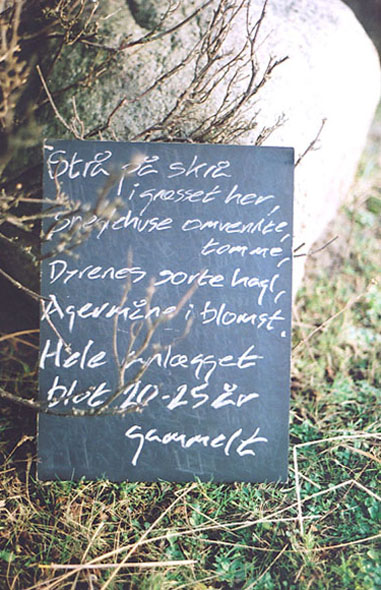 Strå på skrå
i græsset her,
Sneglehuse omvendte,
tomme,
Dyrenes sorte hagl,
Agermåne i blomst.
Hele anlægget
blot 20-25 år
gammelt